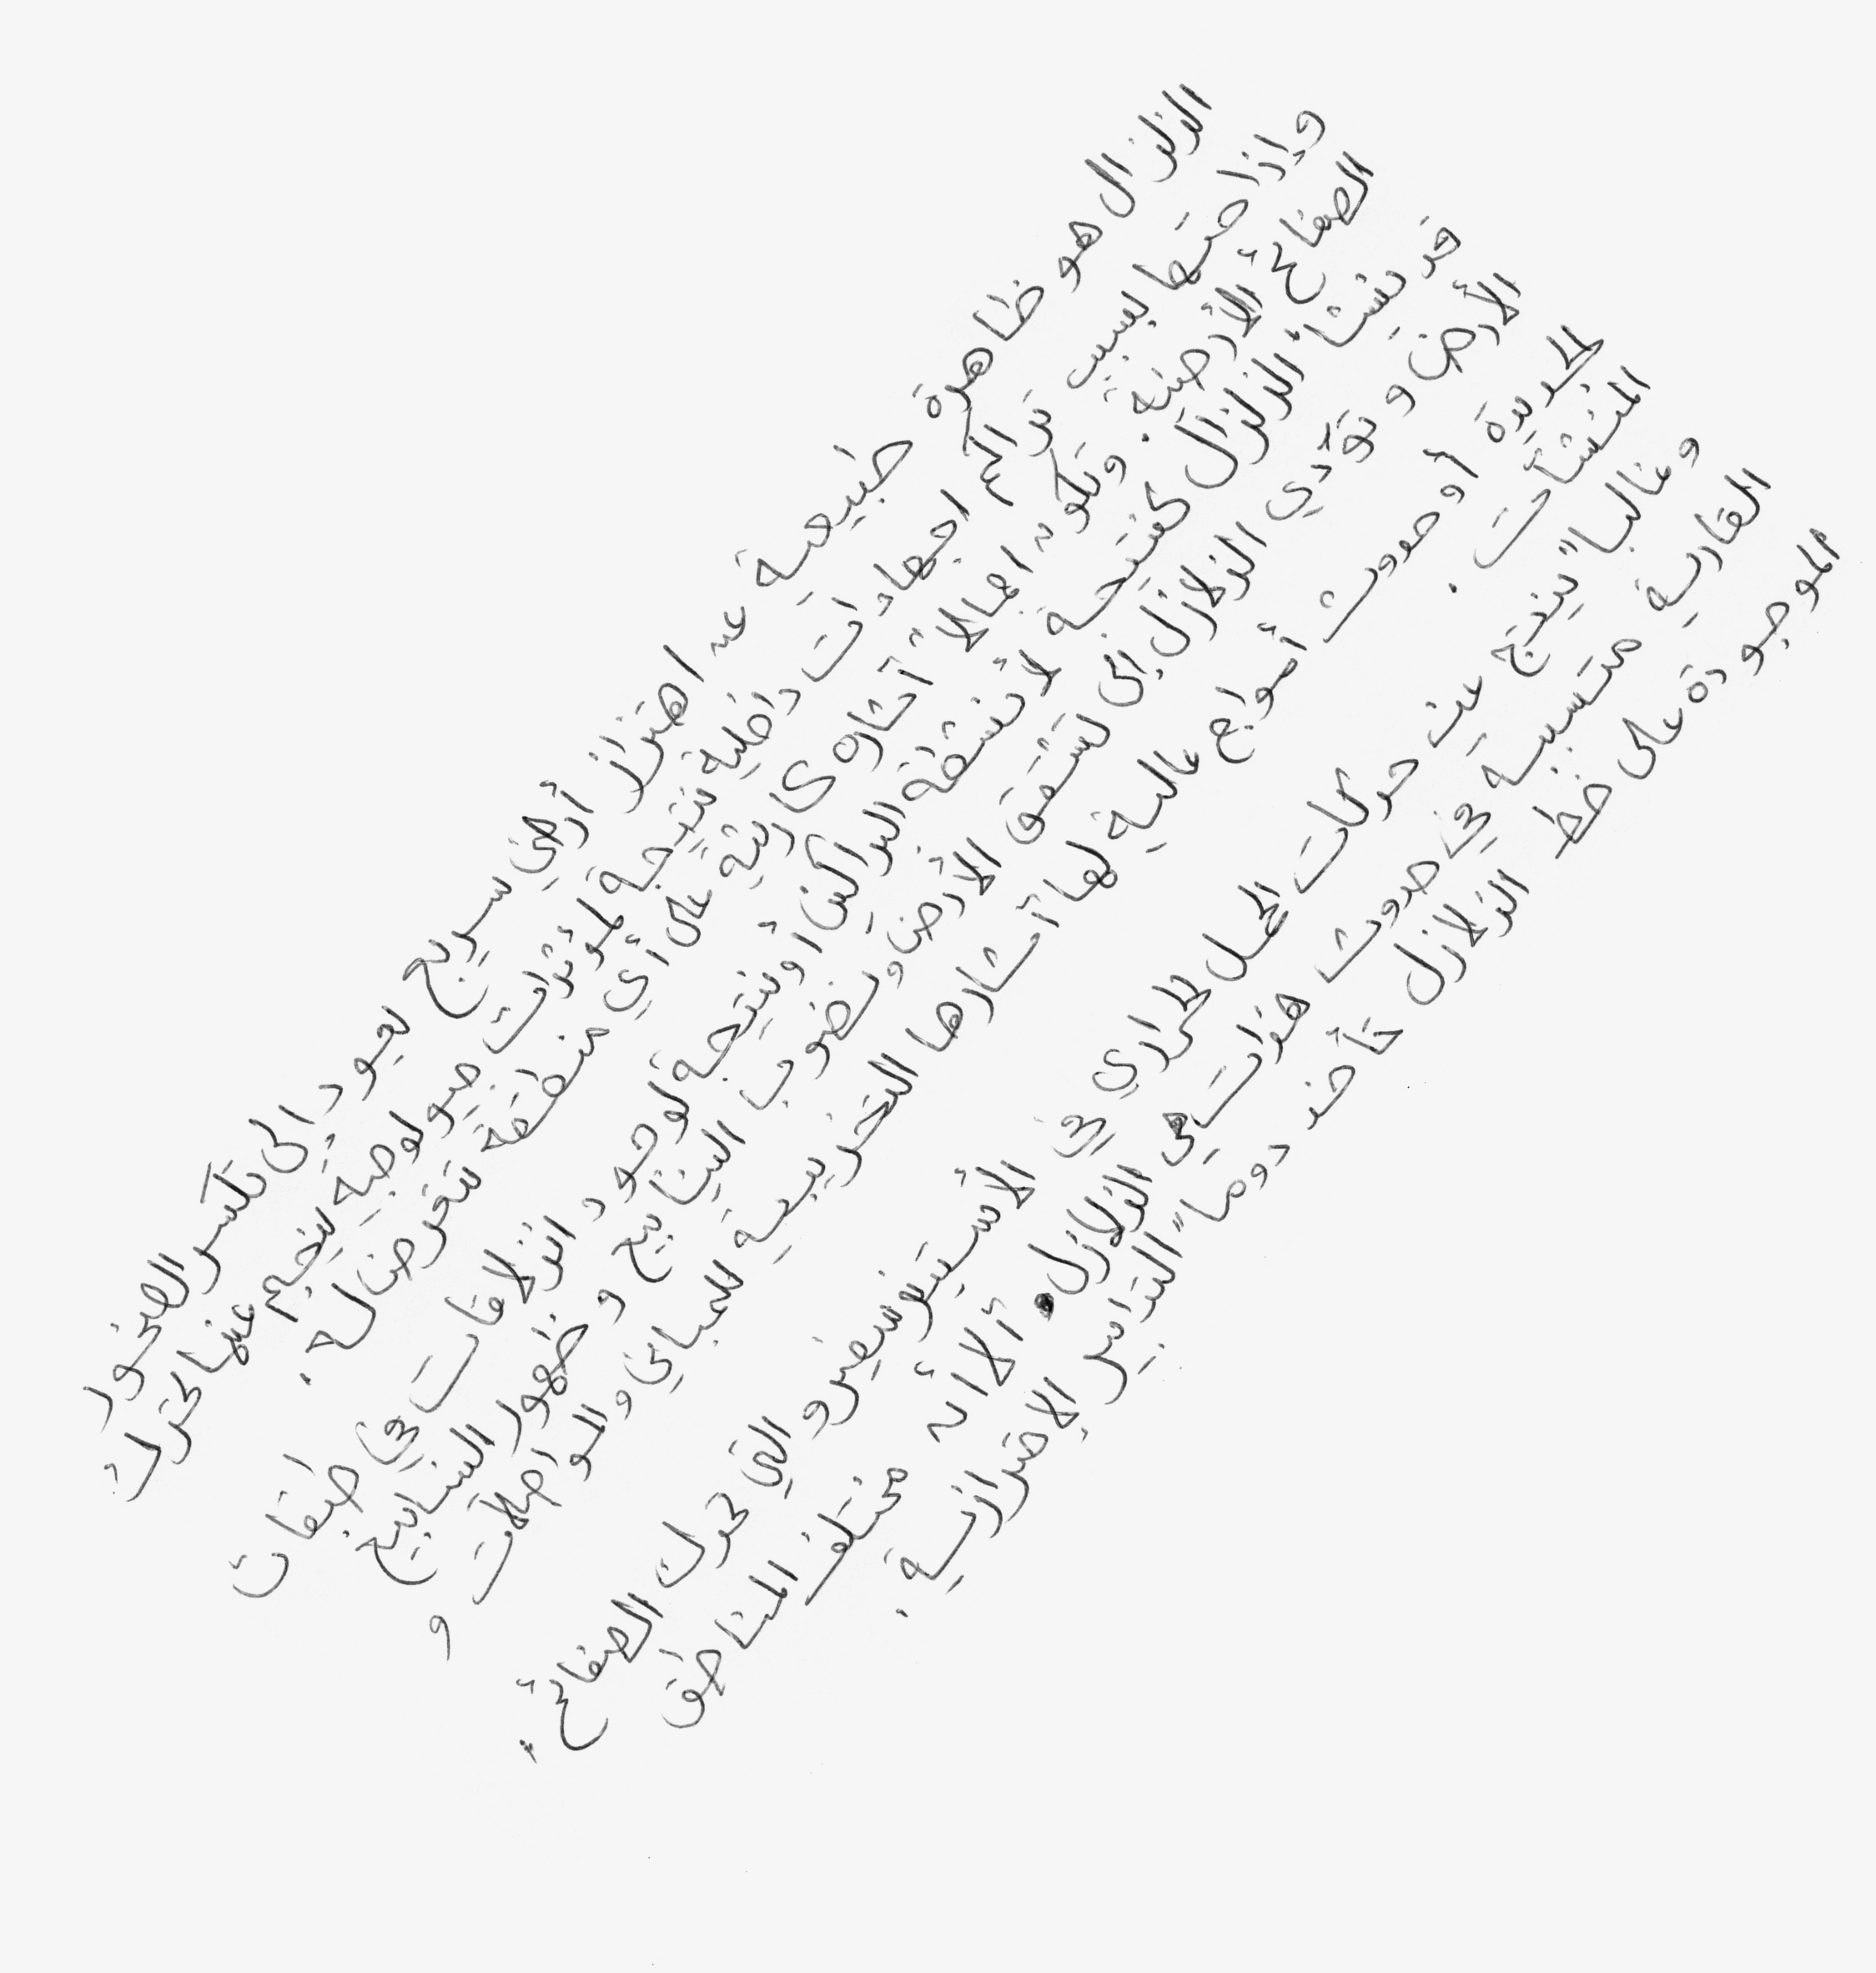 الزلزال هو ظاهرة طبيعية عن اهتزاز أرضي سريع يعود إلى تكسر الصخور
وإزاحتها بسبب تراكم اجهادات داخلية نتيجة لمؤثرات جيولوجية ينجم عنها تحرك
الصفائح الأرضية. وتكون اجمالا آثاره كارثية على أي منطقة تتعرض له.
قد تنشأ الزلازل كنتيجة لأنشطة البراكين أو نتيجة لوجود انزلاقات في طبقات
الأرض و تؤدي الزلازل إلى تشقق الأرض ونضوب الينابيع و ظهور الينابيع
الجديدة أو حدوث أمواج عالية لها آثارها التخريبية للمباني والمواصلات و
المنشآت.
وغالبا ينتج عن حركات الحمل الحراري في الأستينوسفير و التي تحرك الصفائح
القارية متسببة في حدوث هزات هي الزلازل. ألا أن مختلف المناطق
الموجودة على خط الزلازل تأخذ دوما التدابير الاحترازية.